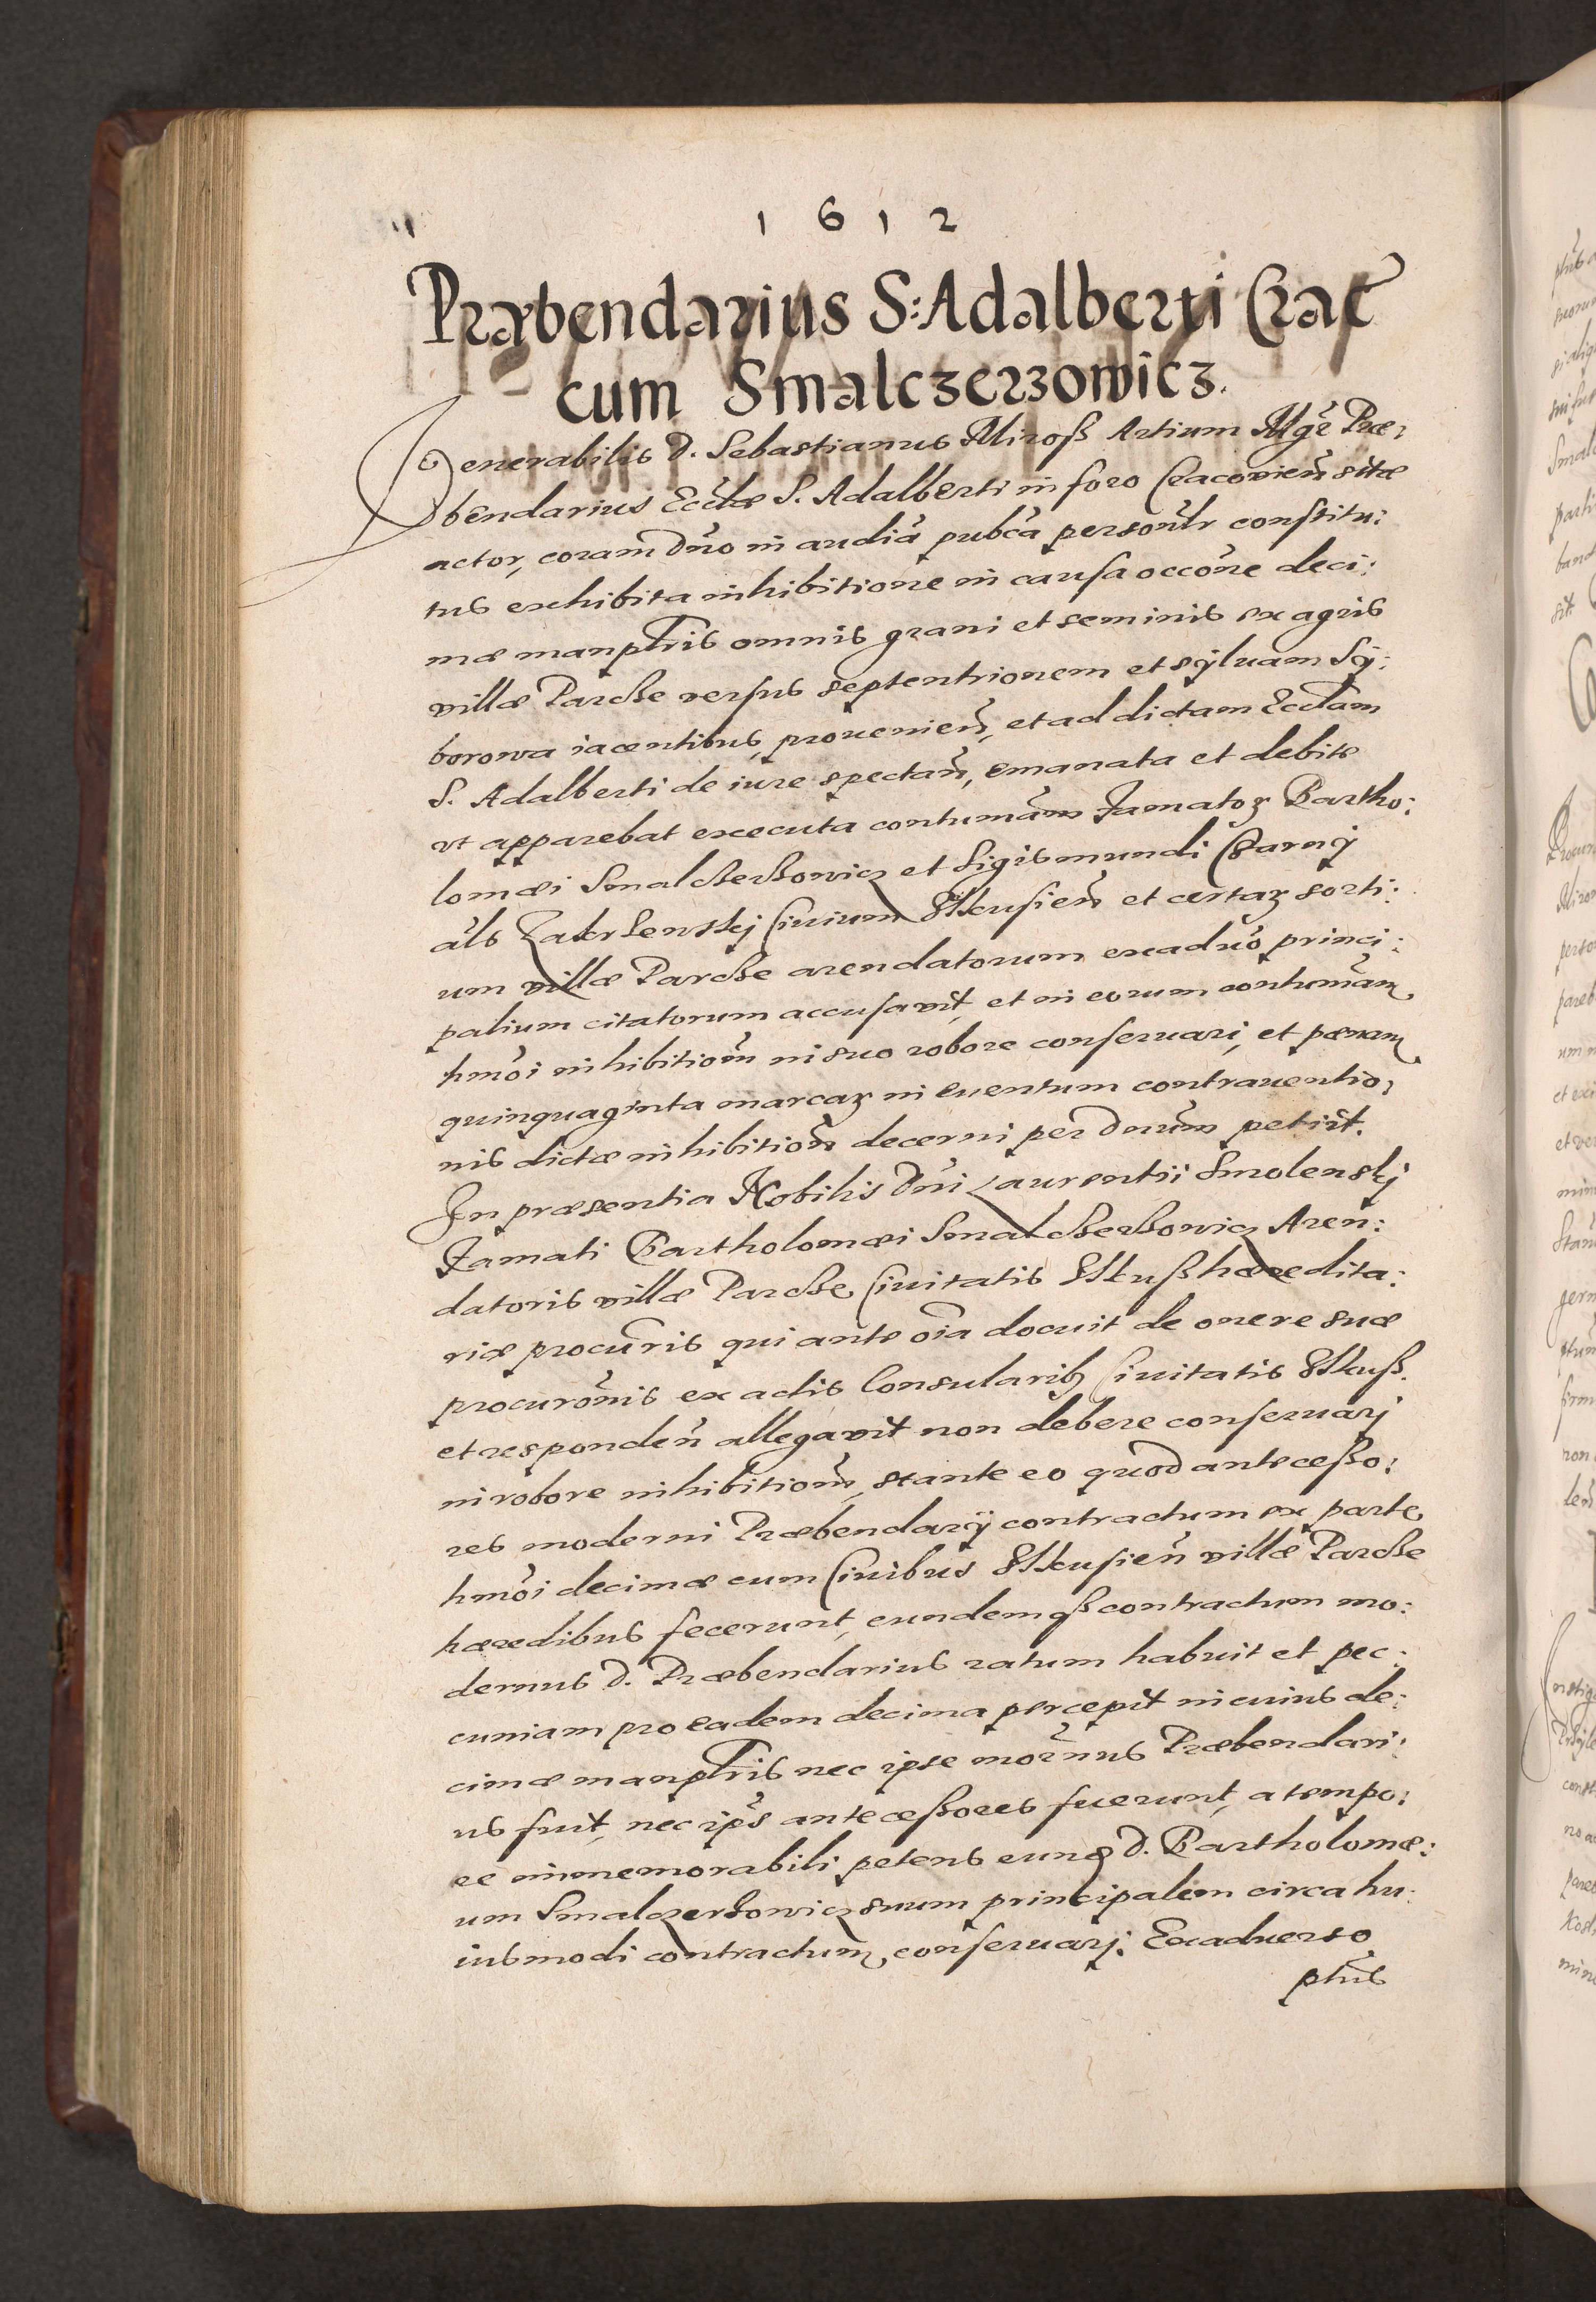 1612
Præbendarius S: Adalberti Crac
cum Smalczerzowicz.
Venerabilis D. Sebastianus Mirosz Artium Mgr̃ Præ:
bendarius Eccl̃æ S. Adalberti in foro Cracovien̄ sitæ
actor, coram Dn̄o in audiā pubc̄a personl̄r constitu:
tus exhibita inhibitione in causa occōne deci:
mæ manpl̄ris omnis grani et seminis ex agris
villæ Parcze versus septentrionem et syluam Sy:
borowa iacentibus, prouenien̄, et ad dictam Eccl̃am
S. Adalberti de iure spectan̄, emanata et debite
vt apparebat executa contumām Famatoꝝ Bartho:
lomæi Smalczerzowicz et Sigismundi Czarny
al̄s Zakrzewskj Ciuium Ilkusien̄ et certaꝝ sorti:
um villæ Parcze arendatorum exaduō princi:
palium citatorum accusavit, et in eorum contumām
hmōi inhibitiōm in suo robore conseruari, et pænam
quinquaginta marcaꝝ in euentum contrauentio:
nis dictæ inhibitiōn decerni per Dnūm petiit.
In præsentia Nobilis Dn̄i Laurentii Smolenskj
Famati Bartholomæi Smalczerzowicz Aren:
datoris villæ Parcze Ciuitatis Ilkusz hæredita:
riæ procūris qui ante oīa docuit de onere suæ
procurōnis ex actis Consularibꝫ Ciuitatis Ilkusz.
et responden̄ allegavit non debere conseruarj
in robore inhibitiōm, stante eo quod antecesso:
res moderni Præbendarÿ contractum ex parte
hmōi decimæ cum Ciuibus Ilkusien̄ villæ Parcze
hæredibus fecerunt, eundemqß contractum mo:
dernus D. Præbendarius ratum habuit et pec:
cuniam pro eadem decima percepit in cuius de:
cimæ manpl̄ris nec ipse mod̄rnus Præbendari:
us fuit, nec ip̄s antecessores fuerunt, a tempo:
re immemorabili petens eund D. Bartholomæ:
um Smalczerzowicz suum principalem circa hu:
iusmodi contractum conseruarj. Exaduerso
pt̄us